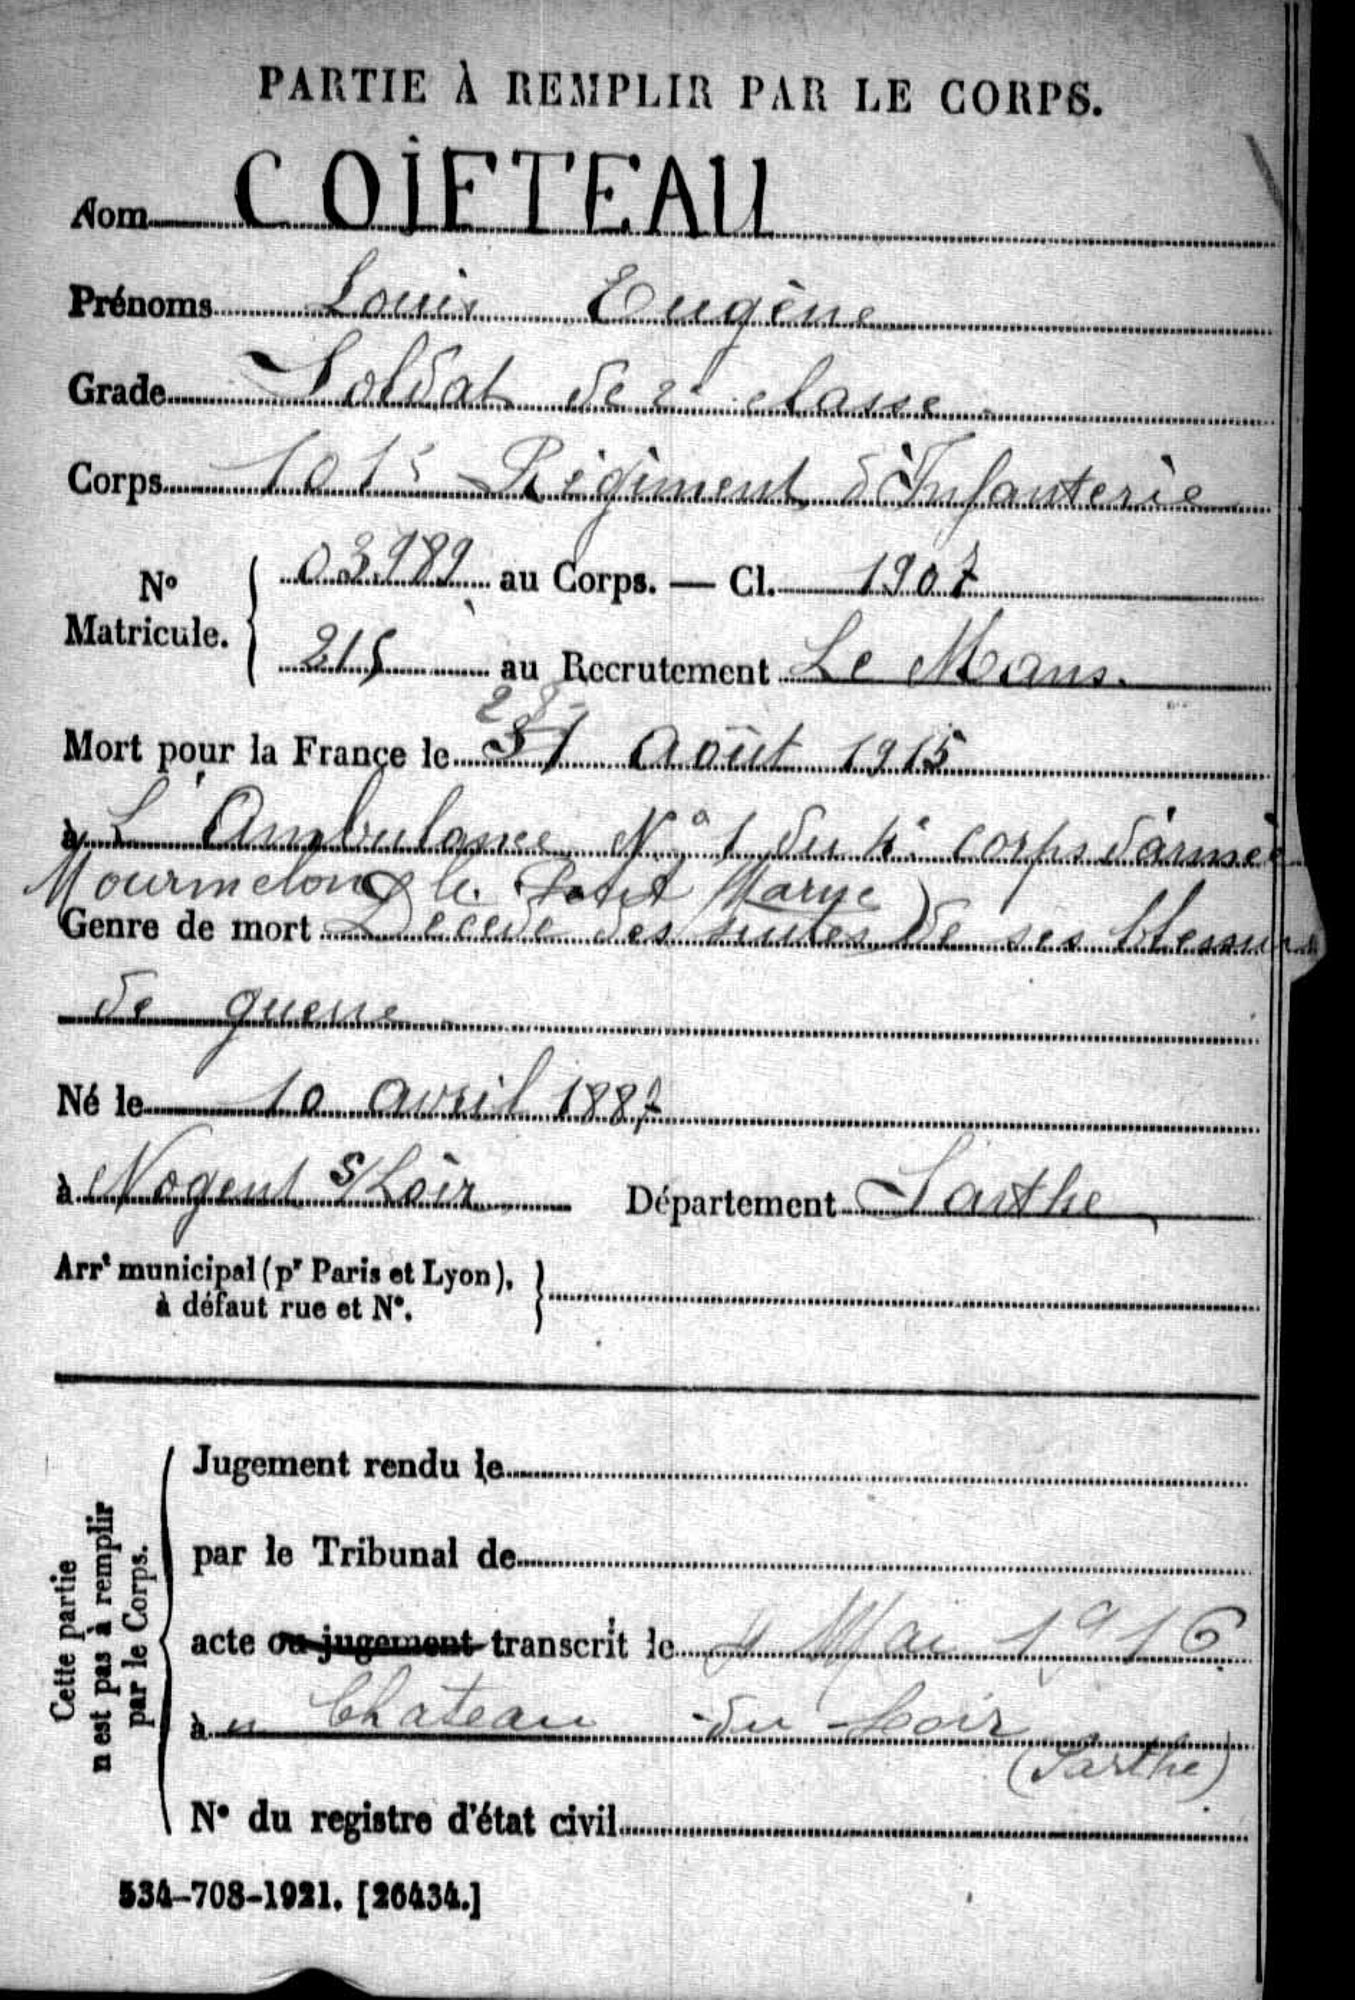 PARTIE À REMPLIR PAR LE CORPS.
Nom COIETEAU
Prénoms Louis Eugène
Grade Soldat de 2e classe
Corps 101e Régiment d'Infanterie
No Matricule. 03989 au Corps. — Cl. 1907
215 au Recrutement Le Mans.
28
Mort pour la France le 31 Août 1915
à L'Ambulance No 1 du 4e corps d'armée
Mourmelon le Petit Marne)
Genre de mort Décédé des suites de ses blessures
de guerre
Né le 10 avril 1887
à Nogent s/Loir Département Sarthe
Arrt municipal (pr Paris et Lyon),
à défaut rue et No.
Cette partie
n'est pas à remplir
par le Corps.
Jugement rendu le
par le Tribunal de
acte ou jugement transcrit le 4 Mai 1916
à Chateau du Loir
(Sarthe)
No du registre d'état civil
534-708-1921. [26434.]